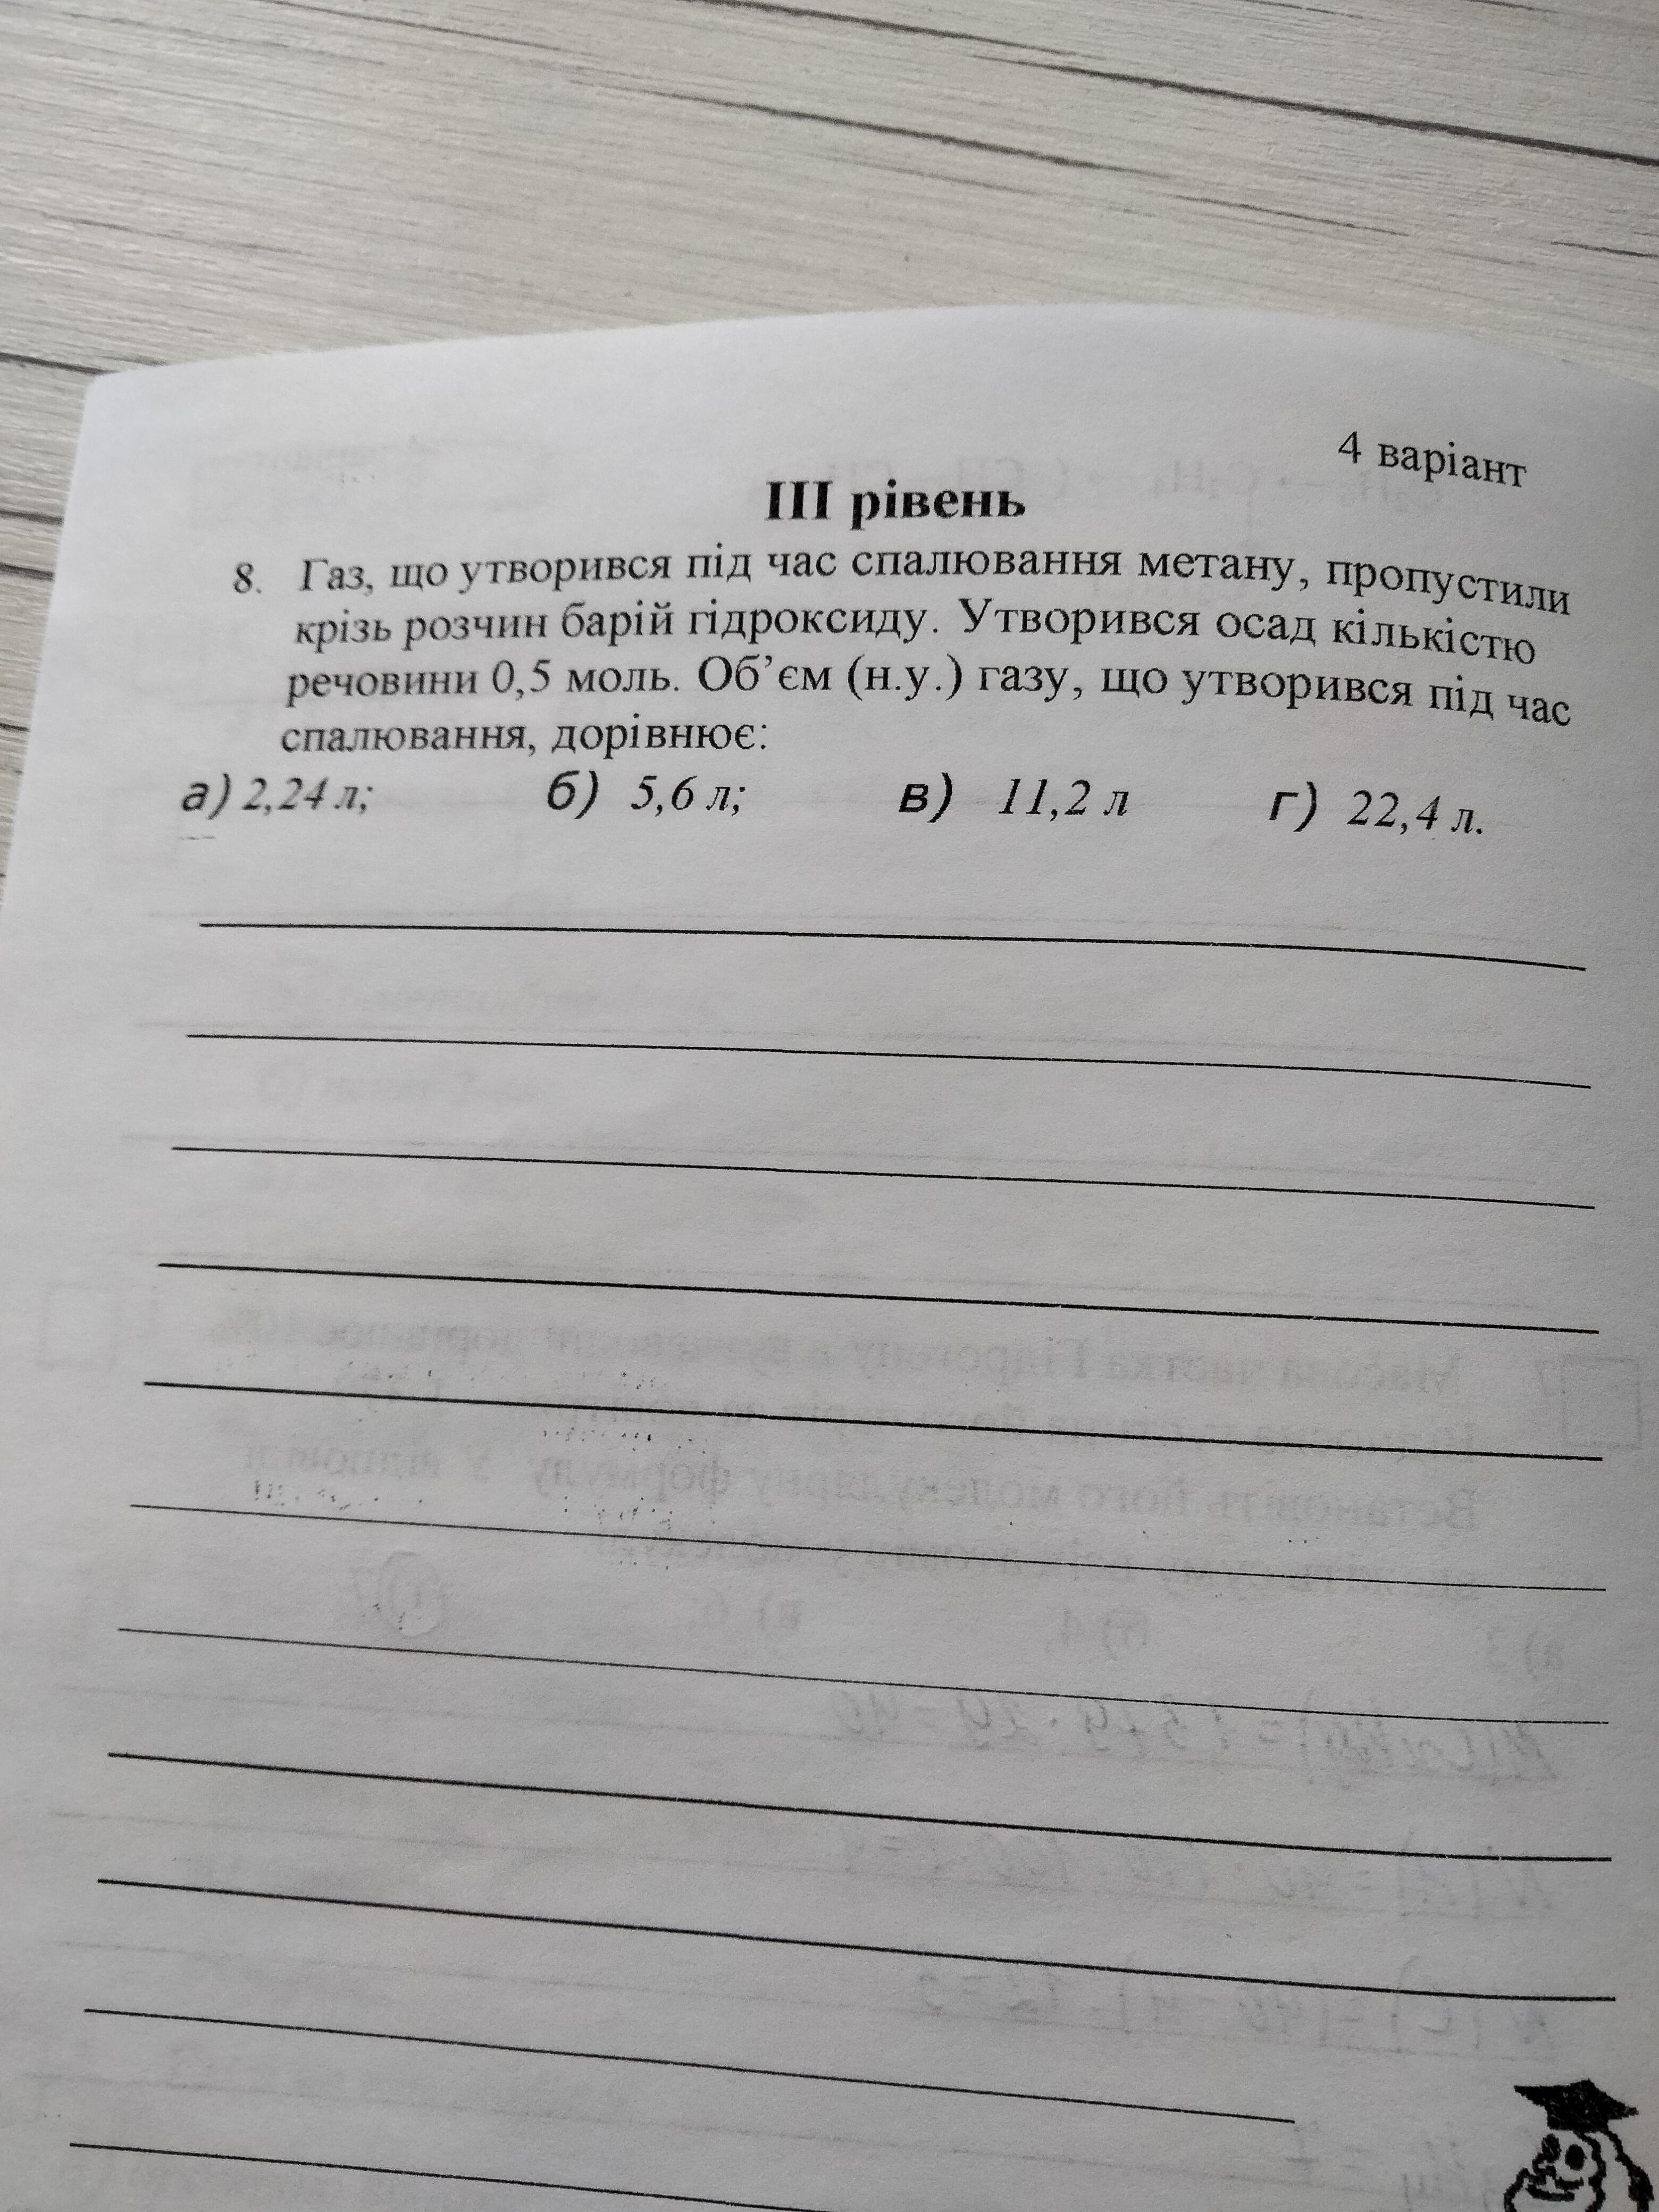 4 варіант
III рівень
8. Газ, що утворився під час спалювання метану, пропустили
крізь розчин барій гідроксиду. Утворився осад кількістю
речовини 0,5 моль. Об’єм (н.у.) газу, що утворився під час
спалювання, дорівнює:
а) 2,24 л; б) 5,6 л; в) 11,2 л г) 22,4 л.